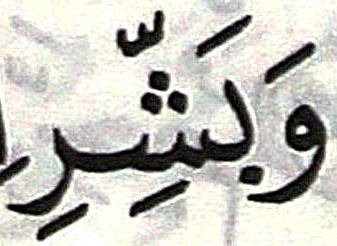 وَبَشِّرِ